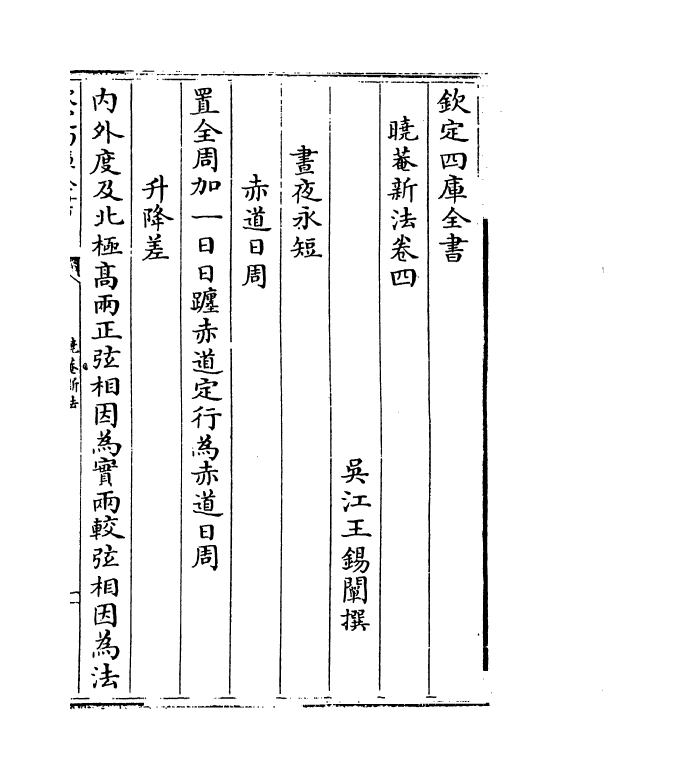 欽定四庫全書
曉菴新法卷四
吳江王錫闡撰
晝夜永短
赤道日周
置全周加一日日躔赤道定行為赤道日周
升降差
內外度及北極高兩正弦相因為實兩較弦相因為法
曉菴新法